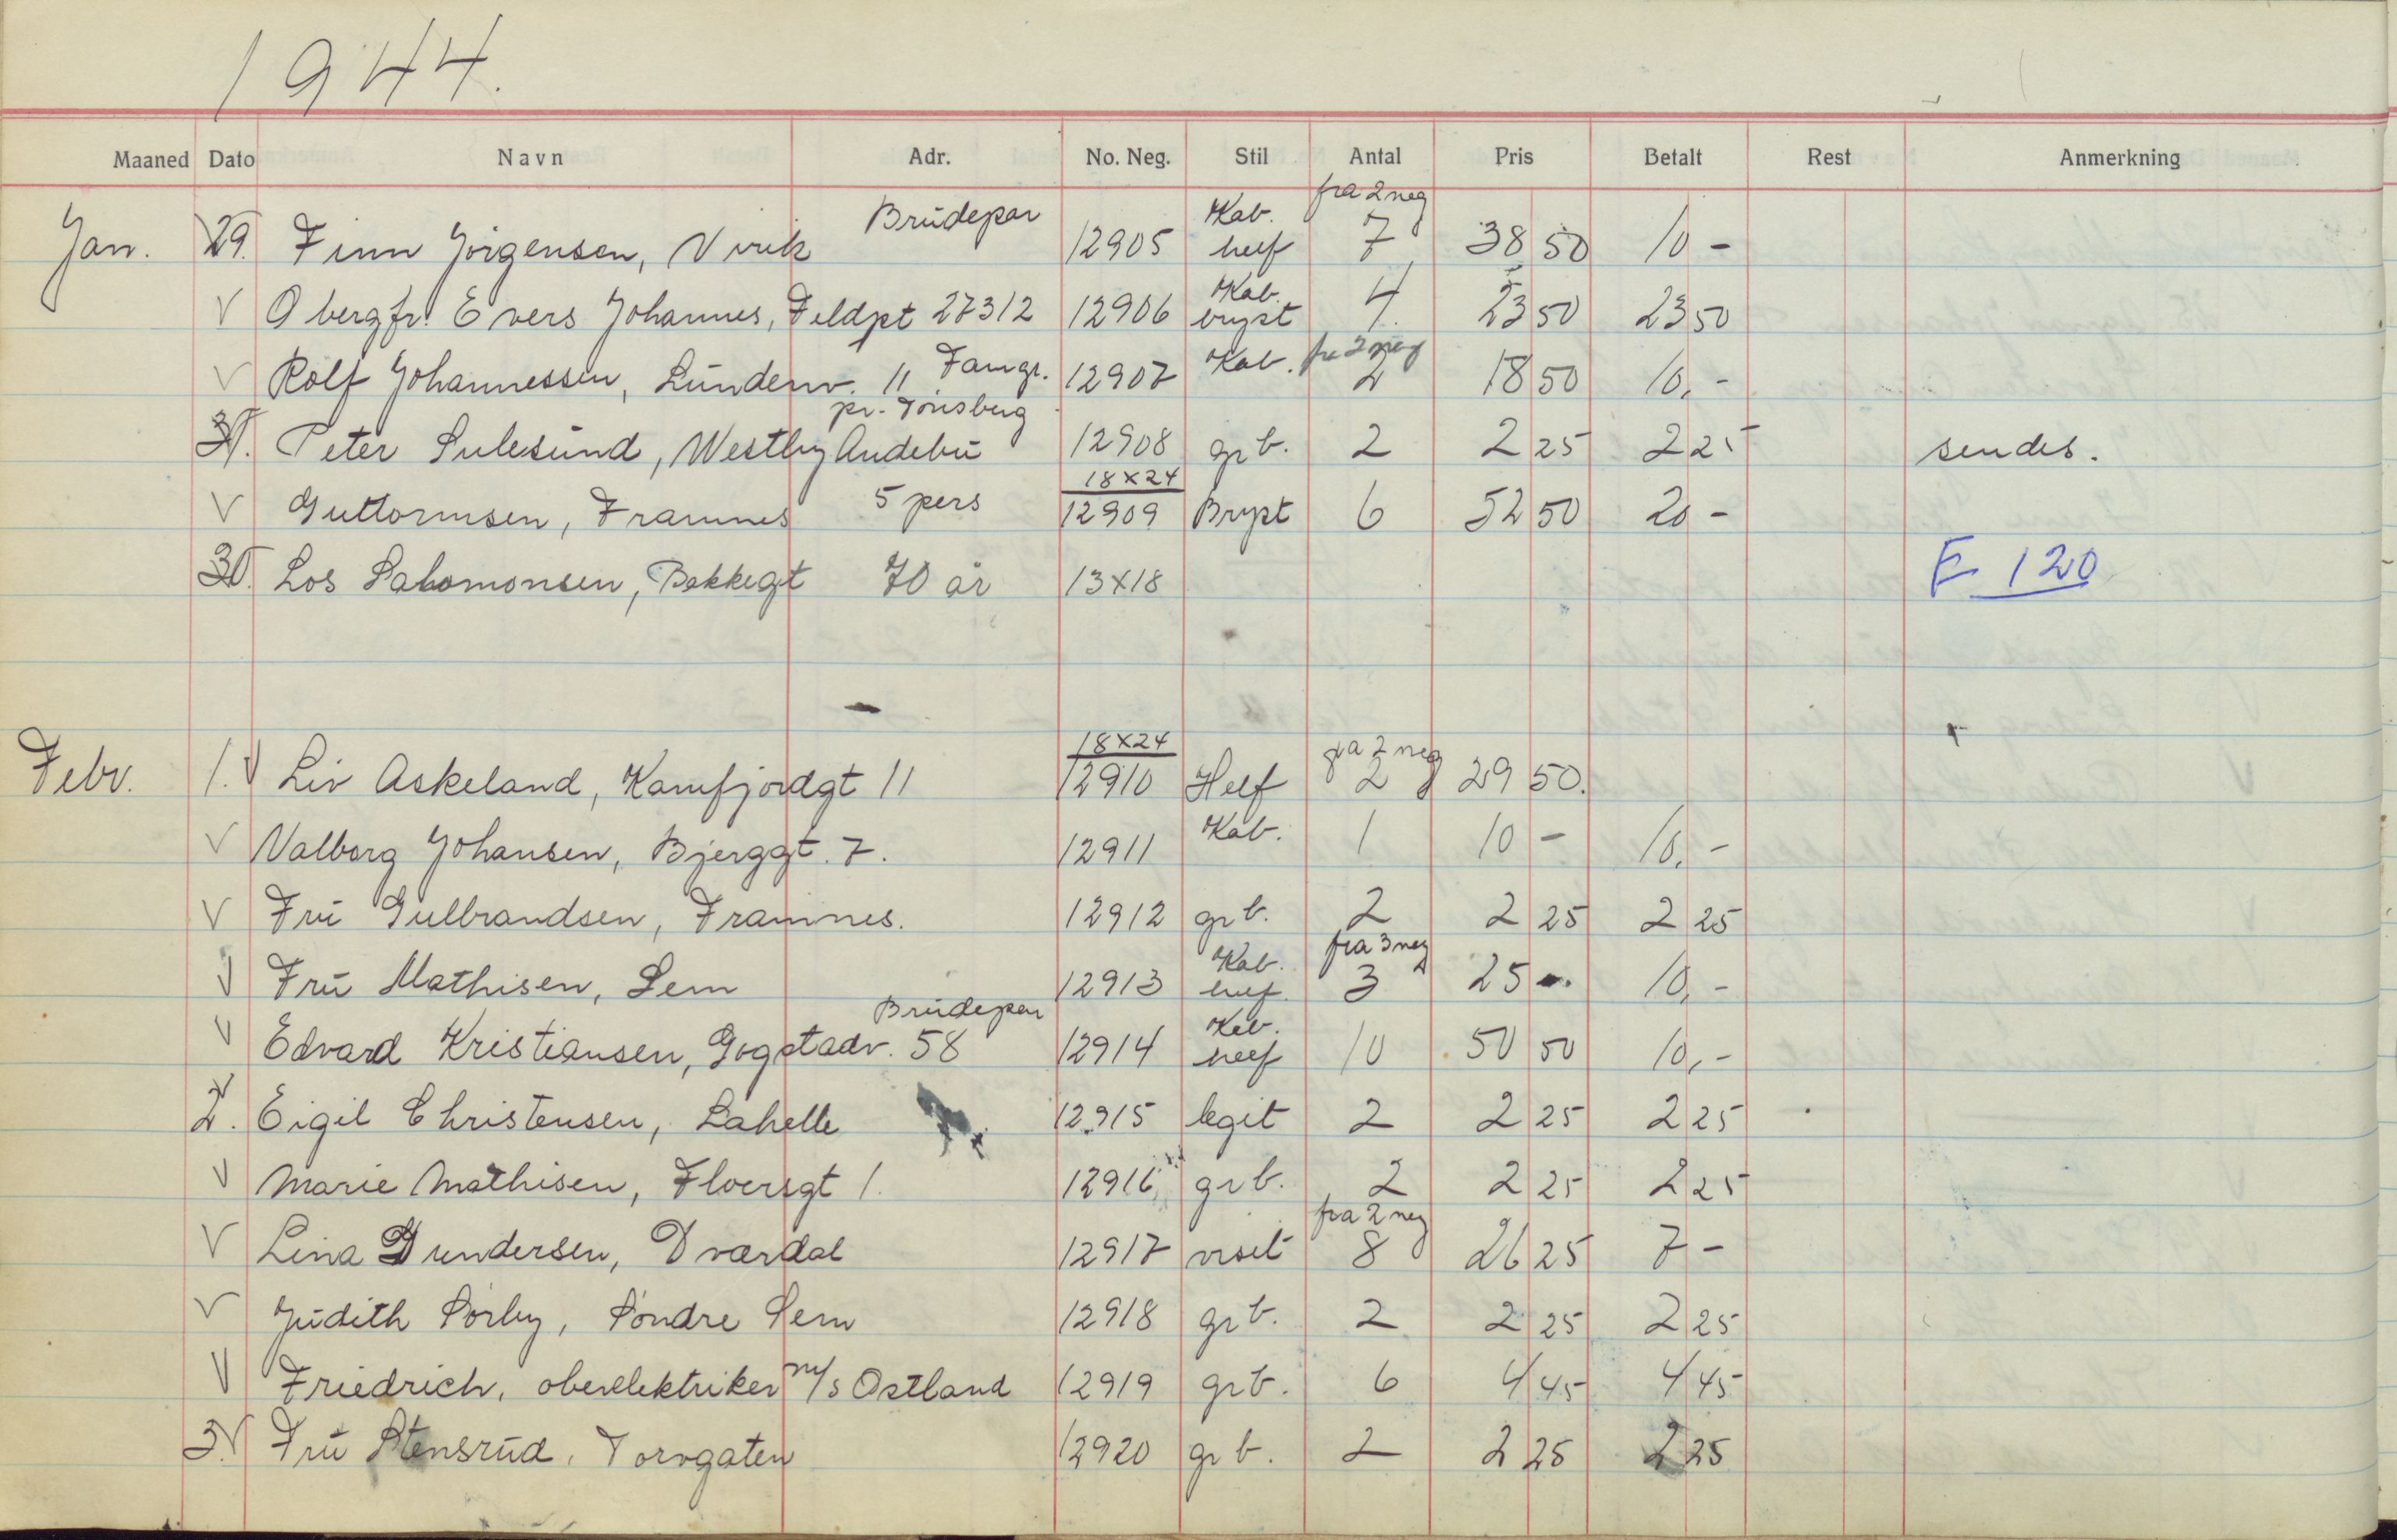 1944.
Maaned Dato Navn Adr. No. Neg. Stil Antal Pris Betalt Rest Anmerkning
Jan. 29. Finn Jörgensen, Virik Brudepar 12905 Kab. helf fra 2 neg 7 38 50 10 -
V Obergfr. Evers Johannes, Feldpt 27312 12906 Kab. bryst 4 23 50 23 50
V Rolf Johannessen, Lundenv. 11 Famgr. 12907 Kab. fra 2 neg 2 18 50 10,-
31. Peter Sulesund, Westby Andebu pr. Tönsberg 12908 gr b. 2 2 25 2 25 sendes.
V Guttormsen, Framnes 5 pers 18x24 12909 Bryst 6 52 50 20 -
30. Los Salomonsen, Bakkegt 70 år 13x18 F 120
Febr. 1. V Liv Askeland, Kamfjordgt 11 18x24 12910 Helf fra 2 neg 2 29 50.
V Valborg Johansen, Bjerggt. 7. 12911 Kab. 1 10 - 10,-
V Fru Gulbrandsen, Framnes. 12912 gr b. 2 2 25 2 25
V Fru Mathisen, Sem 12913 Kab. helf fra 3 neg 3 25 -. 10,-
V Edvard Kristiansen, Gogstadv. 58 Brudepar 12914 Kab. helf 10 50 50 10,-
2. Eigil Christensen, Lahelle 12915 legit 2 2 25 2 25
V Marie Mathisen, Floersgt 1. 12916 gr b. 2 2 25 2 25
V Lina Gundersen, Dværdal 12917 visit fra 2 neg 8 26 25 7 -
V Judith Sörby, Söndre Sem 12918 gr b. 2 2 25 2 25
V Friedrich, oberelektriker m/s Ostland 12919 gr b. 6 4 45 4 45
3. V Fru Stensrud, Torvgaten 12920 gr b. 2 2 25 2 25